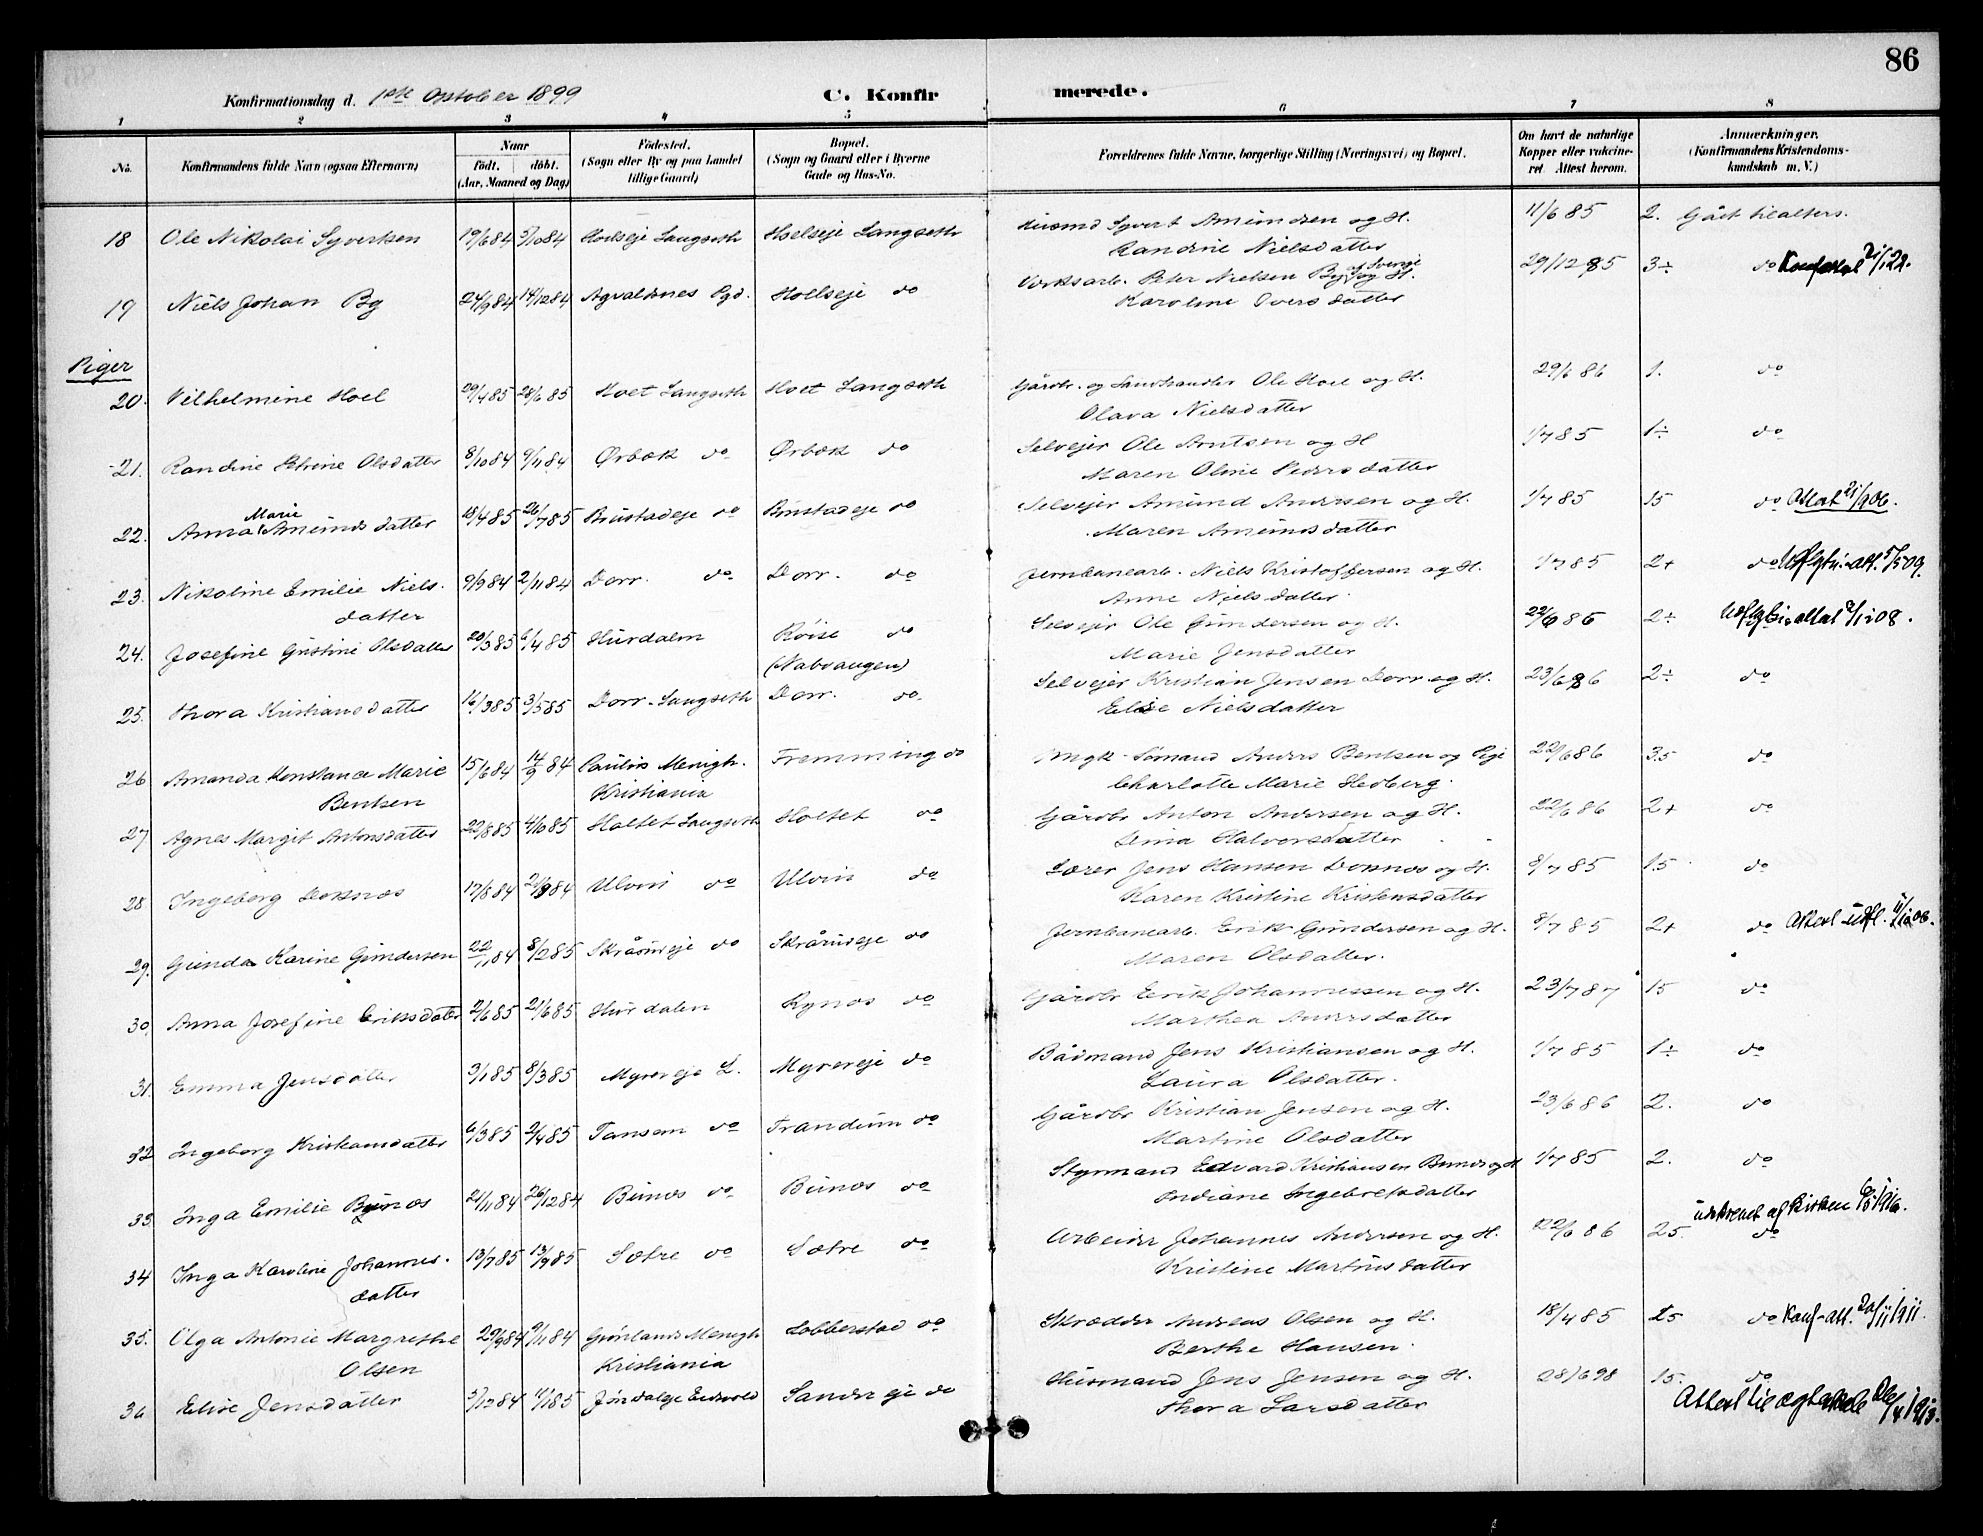 86
Konfirmationsdag d. 1ste October 1899 C. Konfirmerede.
1 2 3 4 5 6 7 8
No. Konfirmandens fulde Navn (ogsaa Efternavn) Naar født. døbt. (Aar, Maaned og Dag) Fødested. (Sogn eller By og paa Landet tillige Gaard) Bopæl. (Sogn og Gaard eller i Byerne Gade og Hus-No. Forældrenes fulde Navne, borgerlige Stilling (Næringsvei) og Bopæl. Om havt de naturlige Kopper eller vakcineret Attest herom. Anmærkninger. (Konfirmandens Kristendomskundskab m. V.)
18 Ole Nikolai Syvertsen 19/6 84 5/10 84 Hoelseje Langseth Hoelseje Langseth Husmd Syvert Amundsen og H. 11/6 85 2. Gået tilalters.
Randine Nielsdatter
19 Niels Johan By 24/9 84 14/12 84 Agvaldnes Pgd. Hoelseje do Verksarb. Peter Nielsen By af Sverige og H. 29/12 85 3÷ do
Karoline Iversdatter
Piger
20. Vilhelmine Hoel 29/4 85 28/6 85 Hoel Langseth Hoel Langseth Gårdbr. og Landhandler Ole Hoel og H. 29/6 86 1. do
Olava Nielsdatter
21. Randine Oline Olsdatter 8/10 84 9/11 84 Ørbæk do Ørbæk do Selvejer Ole Arntsen og H 1/7 85 1÷ do
Maren Oline Pedersdatter
22. Anna Marie Amundsdatter 18/4 85 26/7 85 Brustadeje do Brustadeje do Selvejer Amund Andersen og H. 1/7 85 15 do Attest 21/1 906.
Maren Amundsdatter
23. Nikoline Emilie Nielsdatter 9/9 84 2/11 84 Dorr. do Dorr. do Jernbanearb. Niels Kristoffersen og H. 1/7 85 2+ do
Anne Nielsdatter
24. Josefine Gustine Olsdatter 20/3 85 6/4 85 Hurdalen Røise do Selvejer Ole Gundersen og H. 22/6 86 2÷
(Nabvangen) Marie Jensdatter
25. Thora Kristiansdatter 16/3 85 3/5 85 Dorr. Langseth Dorr. do. Selvejer Kristian Jensen Dorr og H. 23/6 86 2÷ do
Elise Nielsdatter
26 Amanda Konstance Marie Bentsen 15/6 84 14/9 84 Paulus Menigh. Kristiania Fremming do Ungk. Sømand Anders Bentsen og Pige 22/6 86 3.5 do
Charlotte Marie Hedberg.
27 Agnes Margit Antonsdatter 22/8 85 4/10 85 Holtet Langseth Holtet do Gårdbr Anton Andersen og H. 22/6 86 2+ do
Lina Halvorsdatter
28 Ingeborg Doknæs 17/8 84 21/9 84 Ulvin do Ulvin do Lærer Jens Hansen Doknæs og H. 8/7 85 1.5 do
Karen Kristine Kristensdatter
29. Gunda Karine Gundersen 22/11 84 8/2 85 Skrårudeje do Skråruseje do Jernbanearb. Erik Gundersen og H. 8/7 85 2+ do Attest udst. 11/12 06.
Maren Olsdatter.
30. Anna Josefine Eriksdatter 2/6 85 21/6 85 Hurdalen Rynæs do Gårdbr Erik Johannessen og H. 23/7 87 15 do
Marthea Andersdatter
31. Emma Jensdatter 3/1 85 8/3 85 Myrereje L. Myrereje do Bådmand Jens Kristiansen og H. 1/7 85 1÷ do
Laura Olsdatter.
32 Ingeborg Kristiansdatter 6/3 85 2/4 85 Tansem do Trandum do Gårdbr Kristian Jensen og H. 23/6 86 2. do
Martine Olsdatter
33. Inga Emilie Bunæs 21/11 84 26/12 84 Bunæs do Bunæs do Styrmand Edvard Kristiansen Bunæs og H 1/7 85 2. do
Indiane Ingebretsdatter
34 Inga Karoline Johannesdatter 13/7 85 13/9 85 Sætre do Sætre do Arbeider Johannes Andersen og H. 22/6 86 25. do
Kristine Martinsdatter
35. Olga Antonie Margrethe Olsen 29/9 84 9/11 84 Grønlands Menigh Kristiania Lobberstad do Skrædder Andreas Olsen og H. 18/4 85 25 do Konf-att. 20/11 1911.
Berthe Hansen.
36 Elise Jensdatter 5/12 84 11/1 85 Jøndalseje Eidsvold Sandreje do Husmand Jens Jensen og H. 28/6 98 15. do
Thora Larsdatter Attest til ægteskab 26/4 1913.